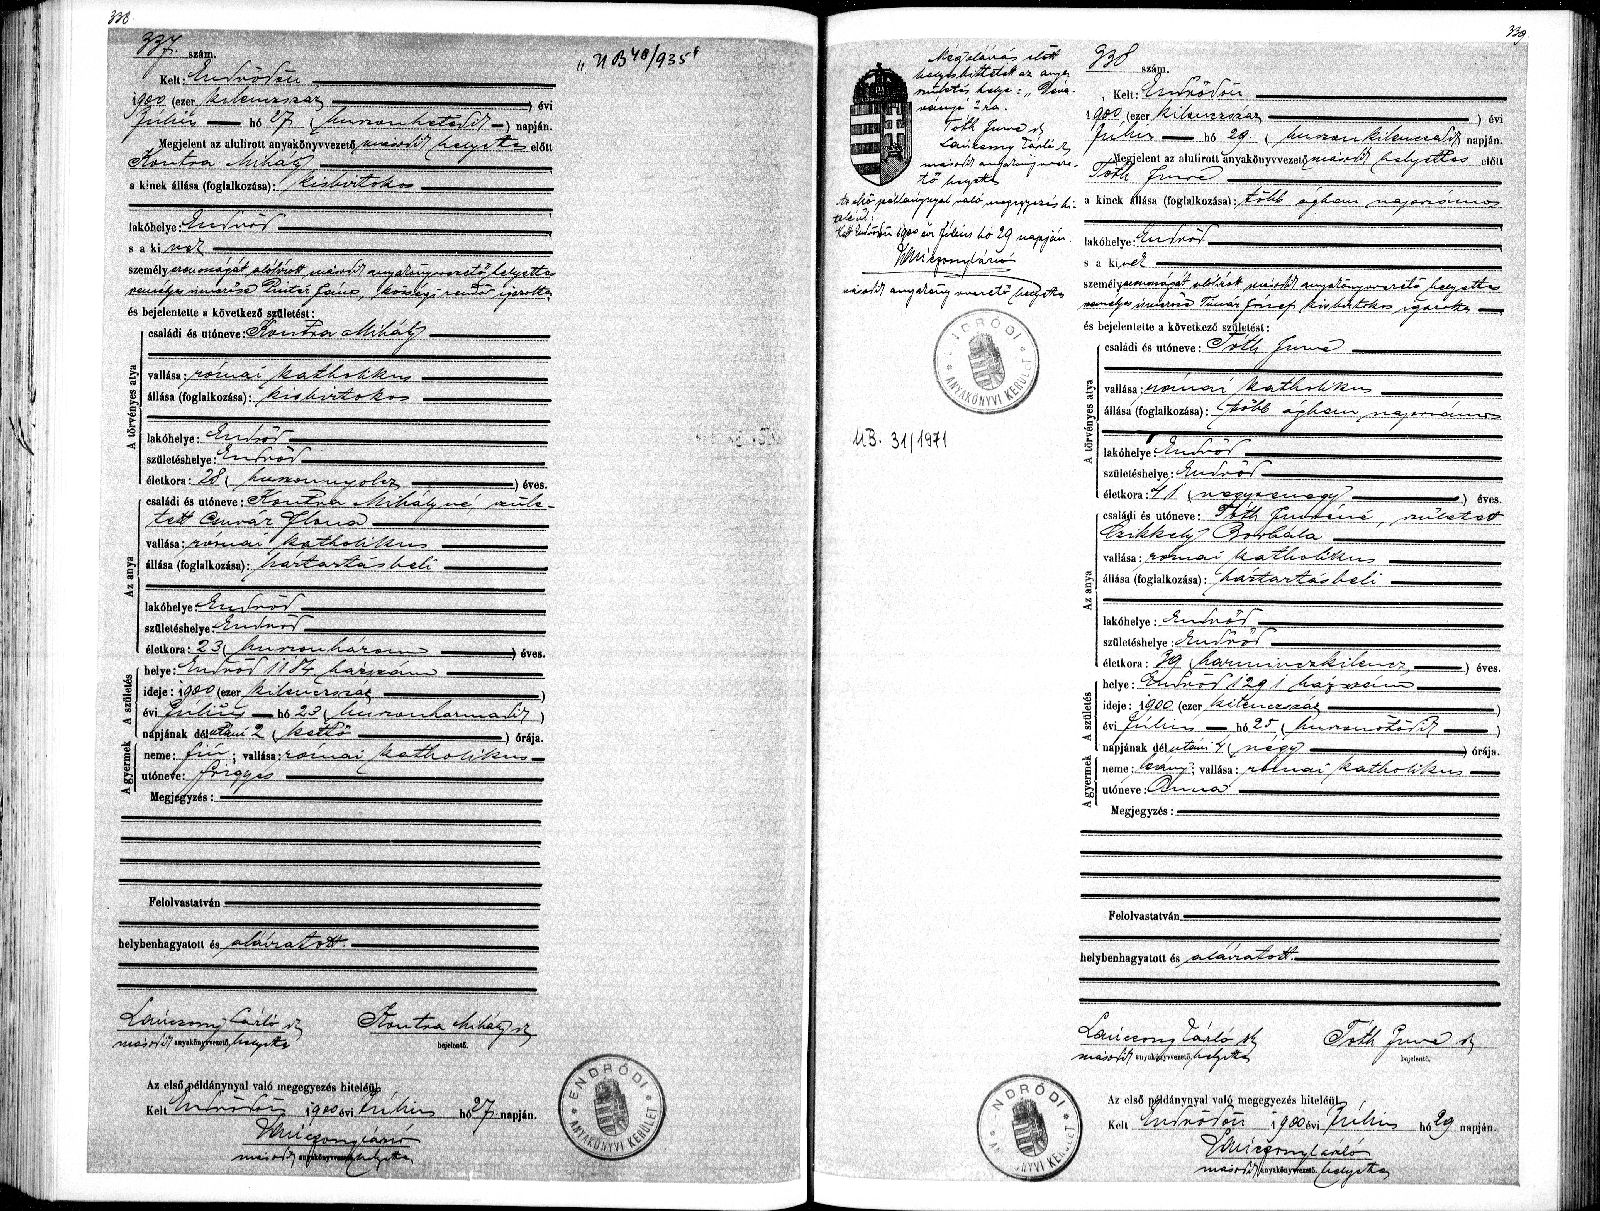 338
337. szám.
"UB 48/935"
Kelt: Endrődön
1900 (ezer kilenczszáz) évi
Július hó 27 (huszonhetedik) napján.
Megjelent az alulirott anyakönyvvezető második helyettes előtt
Kontra Mihály
a kinek állása (foglalkozása): kisbirtokos
lakóhelye: Endrőd
s a ki
személyazonosságát alólírott második anyakönyvvezető helyettes
személyes ismerőse Pintér János, községi rendőr igazolta
és bejelentette a következő születést:
A törvényes atya
családi és utóneve: Kontra Mihály
vallása: római katholikus
állása (foglalkozása): kisbirtokos
lakóhelye: Endrőd
születéshelye: Endrőd
életkora: 28 (huszonnyolcz) éves.
Az anya
családi és utóneve: Kontra Mihályné szüle-
tett Ilona
vallása: római katholikus
állása (foglalkozása): háztartásbeli
lakóhelye: Endrőd
születéshelye: Endrőd
életkora: 23 (huszonhárom) éves.
A születés
helye: Endrőd 1184 házszám
ideje: 1900 (ezer kilenczszáz)
évi Július hó 23 (huszonharmadik)
napjának délutáni 2 (kettő) órája.
A gyermek
neme: fiú; vallása: római katholikus
utóneve: Frigyes
Megjegyzés:
Felolvastatván
helybenhagyatott és aláíratott.
Kontra Mihály sk
második anyakönyvvezető helyettes
bejelentő.
Az első példánynyal való megegyezés hiteléül
Kelt Endrődön 1900 évi Július hó 27 napján.
második anyakönyvvezető helyettes
ENDRŐDI ANYAKÖNYVI KERÜLET
339
Megjelárás előtt
helyesbíttetett az anya
születés helye: "Déva-
ványa"-ra.
Tóth Imre sk
második anyakönyvveze-
tő helyettes
Az első példánynyal való megegyezés hi-
teléül:
Kelt Endrődön 1900 évi Július hó 29 napján.
második anyakönyvvezető helyettes
ENDRŐDI ANYAKÖNYVI KERÜLET
UB. 31/1971
338 szám.
Kelt: Endrődön
1900 (ezer kilenczszáz) évi
Július hó 29 (huszonkilenczedik) napján.
Megjelent az alulirott anyakönyvvezető második helyettes előtt
Tóth Imre
a kinek állása (foglalkozása): több ágban napszámos
lakóhelye: Endrőd
s a ki
személyazonosságát alólírott második anyakönyvvezető helyettes
személyes ismerőse József kisbirtokos igazolta
és bejelentette a következő születést:
A törvényes atya
családi és utóneve: Tóth Imre
vallása: római katholikus
állása (foglalkozása): több ágban napszámos
lakóhelye: Endrőd
születéshelye: Endrőd
életkora: 41 (negyvenegy) éves.
Az anya
családi és utóneve: Tóth Imréné, született
Czikkely Borbála
vallása: római katholikus
állása (foglalkozása): háztartásbeli
lakóhelye: Endrőd
születéshelye: Endrőd
életkora: 39 (harminczkilencz) éves.
A születés
helye: Endrőd 1291 házszám
ideje: 1900 (ezer kilenczszáz)
évi Július hó 25 (huszonötödik)
napjának délutáni 4 (négy) órája.
A gyermek
neme: leány; vallása: római katholikus
utóneve: Anna
Megjegyzés:
Felolvastatván
helybenhagyatott és aláíratott.
Tóth Imre sk
második anyakönyvvezető helyettes
bejelentő.
Az első példánynyal való megegyezés hiteléül
Kelt Endrődön 1900 évi Július hó 29 napján.
második anyakönyvvezető helyettes
ENDRŐDI ANYAKÖNYVI KERÜLET